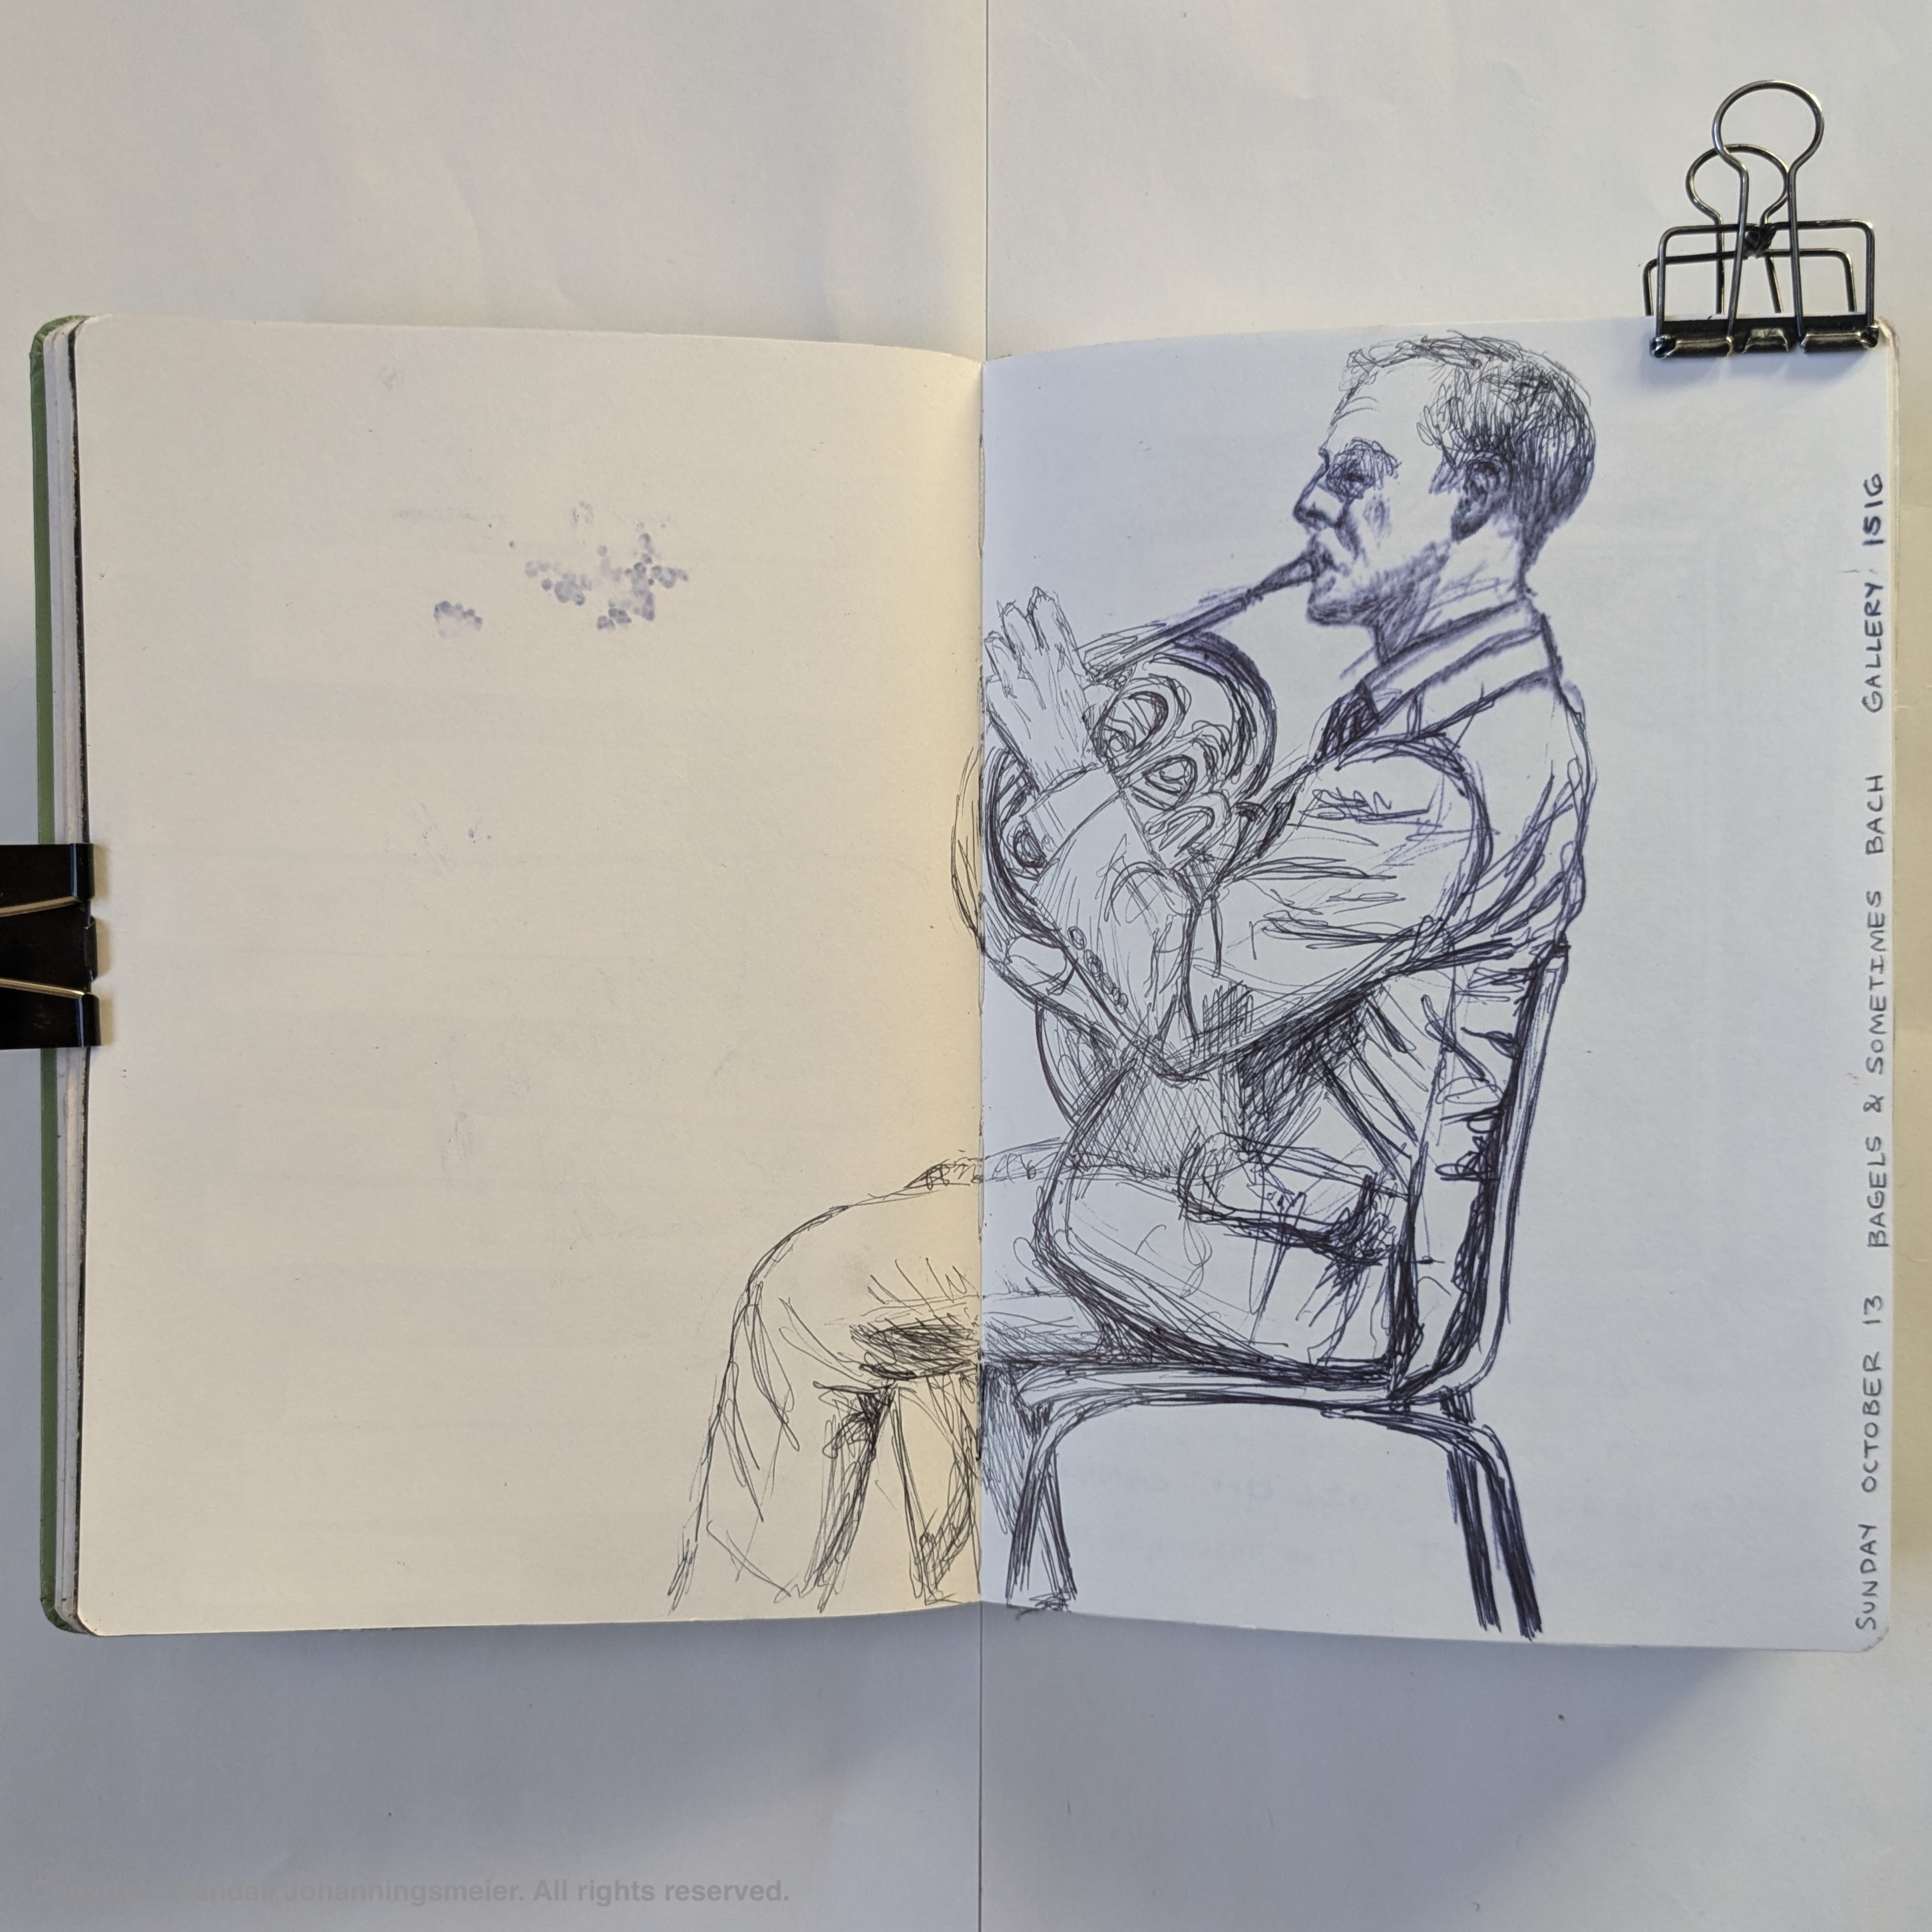 SUNDAY OCTOBER 13 BAGELS & SOMETIMES BACH GALLERY 1516
Randall Johanningsmeier. All rights reserved.